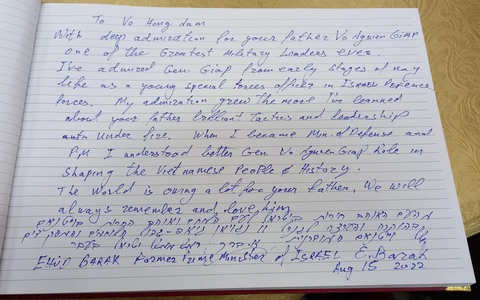 To Vo Hong Nam
With deep admiration for your father Vo Nguyen Giap
one of the Greatest Military Leaders ever.
I've admired Gen. Giap from early stages of my
life as a young special forces officer in Israel Defence
forces. My admiration grew the more I've learned
about your father brilliant tactics and leadership
under fire. When I became Min. of Defense and
P.M I understood better Gen. Vo Nguen Giap Role in
shaping the Vietnamese People & History.
The World is owing a lot for your father. We will
always remember and love him
EHUD BARAK Former Prime Minister of ISRAEL E. Barak
Aug 15 2022